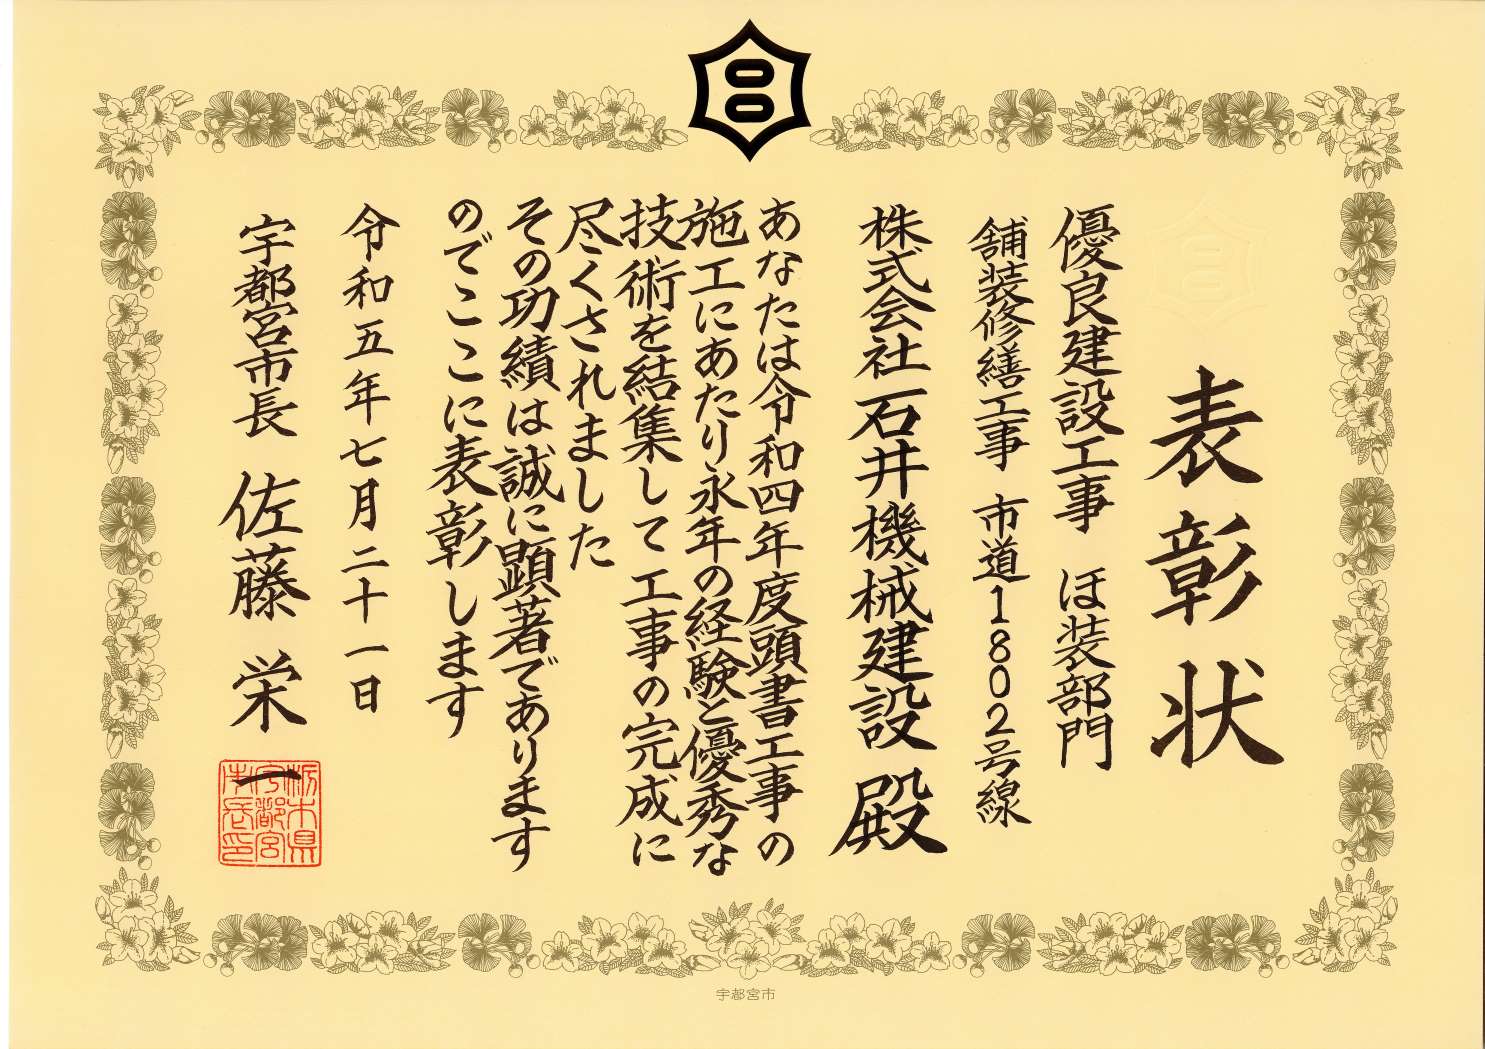 表彰状
優良建設工事 ほ装部門
舗装修繕工事 市道1802号線
株式会社石井機械建設 殿
あなたは令和四年度頭書工事の
施工にあたり永年の経験と優秀な
技術を結集して工事の完成に
尽くされました
その功績は誠に顕著であります
のでここに表彰します
令和五年七月二十一日
宇都宮市長 佐藤栄一
栃木県
宇都宮
市長印
宇都宮市